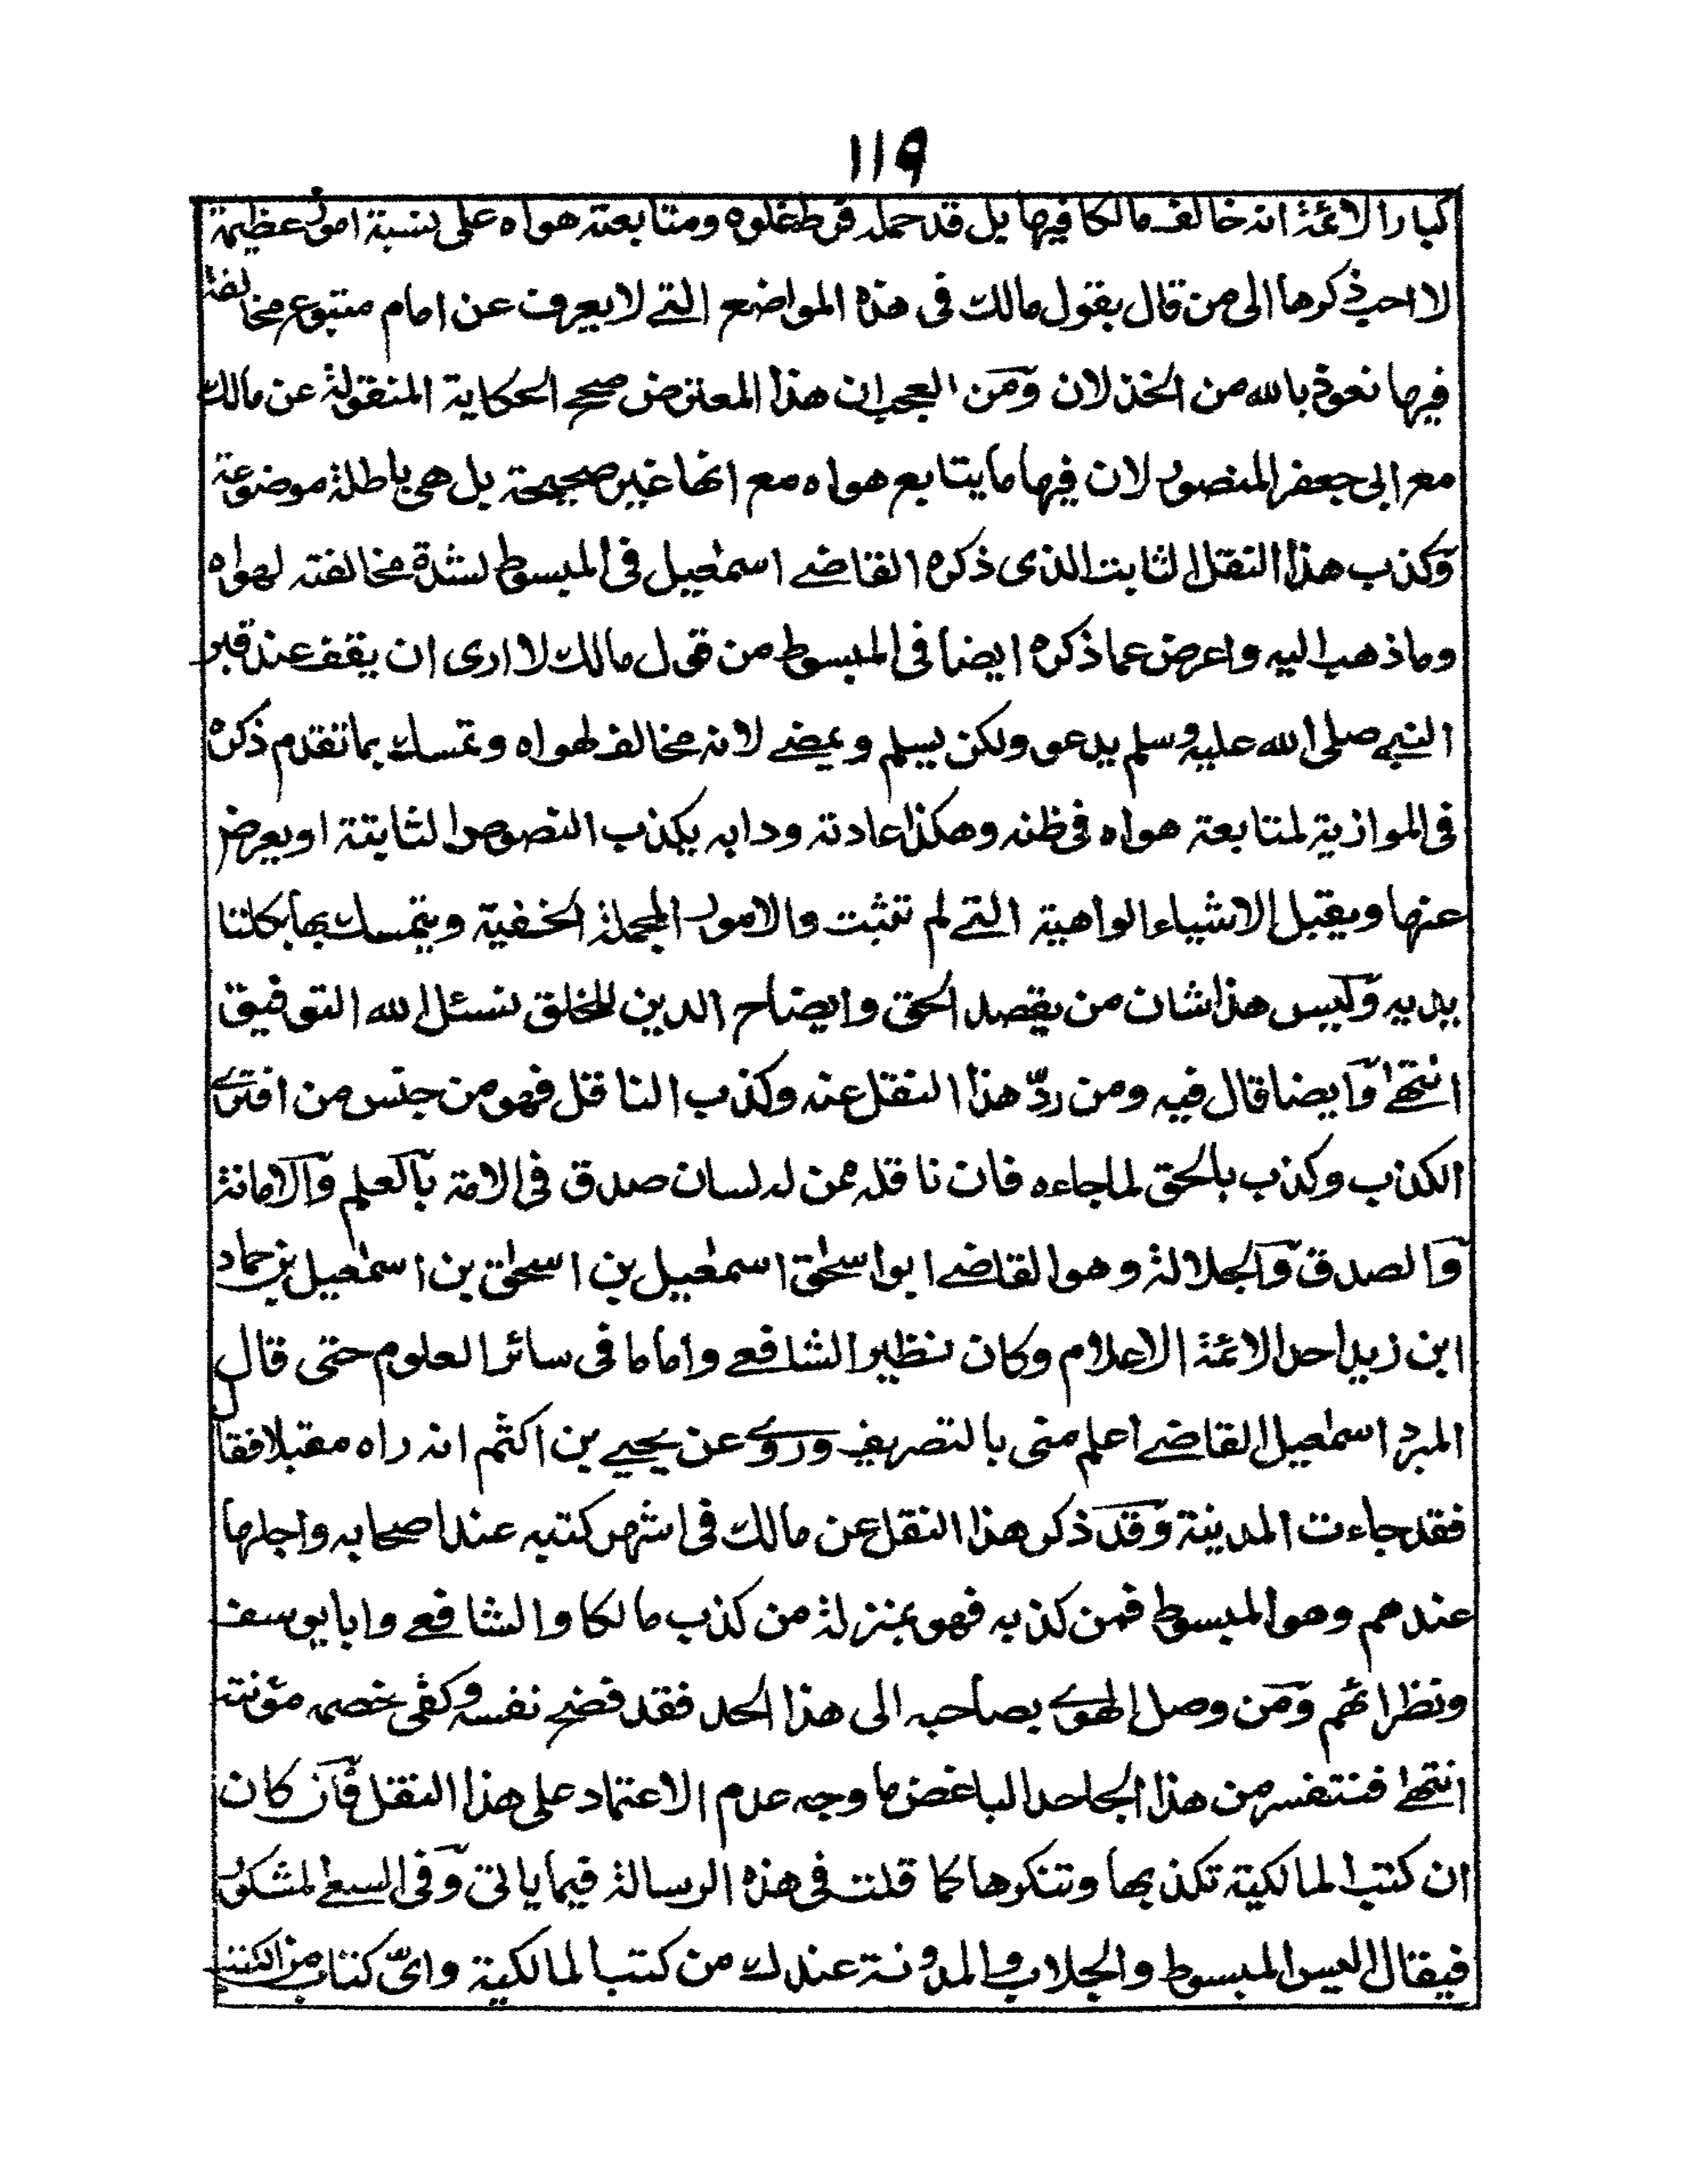 ١١٩
كبار الائمة انه خالف مالكا فيها بل قد حمله فرط غلوه ومتابعته هواه على نسبة امور عظيمة
لا احب ذكرها الى من قال بقول مالك فى هذه المواضع التے لا يعرف عن امام متبوع مخالفته
فيها نعوذ بالله من الخذلان ومن العجب ان هذا المعترض صحح الحكاية المنقولة عن مالك
مع ابى جعفر المنصور لان فيها ما يتابع هواه مع انها غير صحيحة بل هى باطلة موضوعة
وكذب هذا النقل الثابت الذى ذكره القاضے اسمٰعيل فى المبسوط لشدة مخالفته لهواه
وما ذهب اليه واعرض عما ذكره ايضا فى المبسوط من قول مالك لا ارى ان يقف عند قبر
النبے صلى الله عليه وسلم يدعو ولكن يسلم ويمضے لانه مخالف لهواه وتمسك بما تقدم ذكره
فى الموازية لمتابعته هواه فى ظنه وهكذا عادته ودابه يكذب النصوص الثابتة او يعرض
عنها ويقبل الاشياء الواهية التے لم تثبت والامور المجملة الخفية ويتمسك بها بكلتا
يديه وليس هذا شان من يقصد الحق وايضاح الدين للخلق نسئل الله التوفيق
انتهٰے وايضا قال فيه ومن ردّ هذا النقل عنه وكذب الناقل فهو من جنس من افترے
الكذب وكذب بالحق لما جاءه فان ناقله ممن له لسان صدق فى الامة بالعلم والامانة
والصدق والجلالة وهو القاضے ابو اسحٰق اسمٰعيل بن اسحٰق بن اسمٰعيل بن حماد
ابن زيد احد الائمة الاعلام وكان نظير الشافعے واماما فى سائر العلوم حتى قال
المبرد اسمٰعيل القاضے اعلم منى بالتصريف وروے عن يحيے بن اكثم انه راه مقبلا فقال
فقد جاءت المدينة وقد ذكر هذا النقل عن مالك فى اشهر كتبه عند اصحابه واجلها
عندهم وهو المبسوط فمن كذبه فهو بمنزلة من كذب مالكا والشافعے وابا يوسف
ونظرائهم ومن وصل الهوے بصاحبه الى هذا الحد فقد فضح نفسه وكفى خصمه مؤنته
انتهٰے فنتفسر من هذا الجاحد الباغض ما وجه عدم الاعتماد على هذا النقل فان كان
ان كتب المالكية تكذبها وتنكرها كما قلت فى هذه الرسالة فيما ياتى وفى السعے المشكور
فيقال اليس المبسوط والجلاب والمدونة عندك من كتب المالكية واىّ كتاب من الكتب